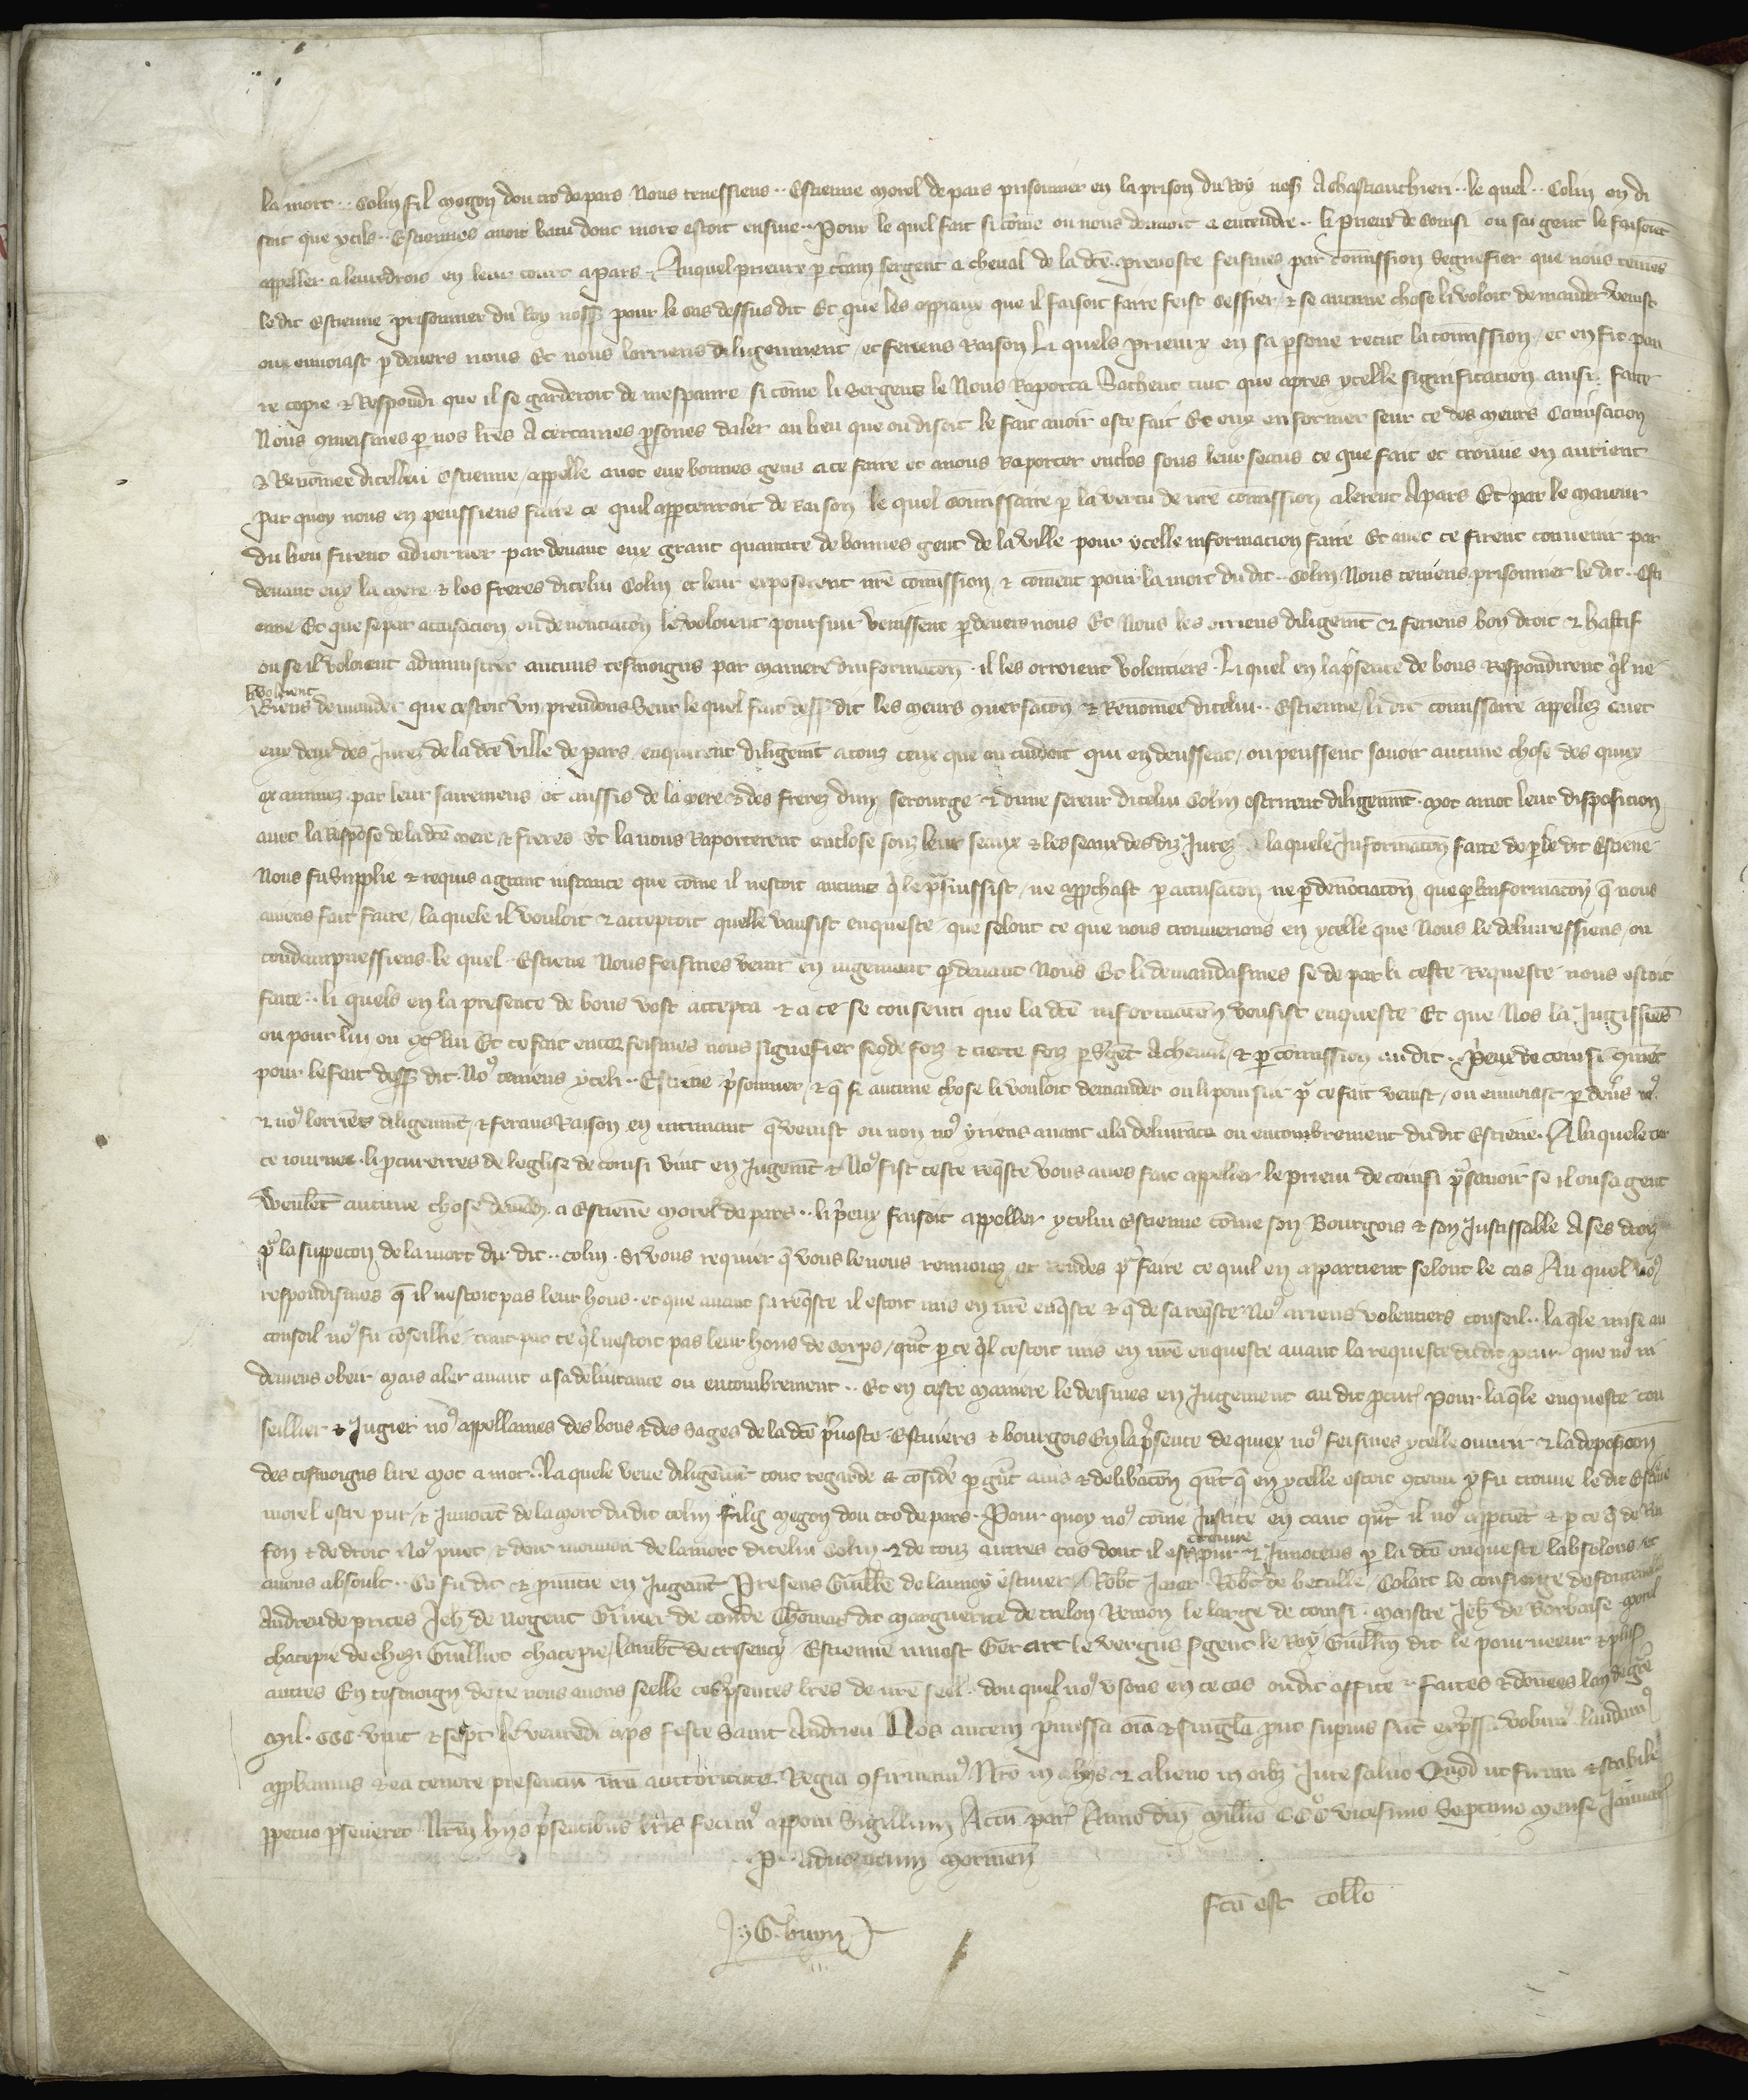 la mort .. Colin fil Megon dou cro de pars Nous tenessiens .. Estienne Morel de pars prisonnier en la prison du Roy noss A chastiauthieri .. le quel .. Colin on di
soit que ycils .. Estiennes avoit batu dont mort estoit ensuie .. Pour le quel fait si cōme on nous donnoit a entendre .. li Prieux de Coinsi ou sa gent le faisoiēt
appeller a leur drois en leur court a pars Auquel prieux p certain sergent a cheval de la dcē prevoste feismes par cōmission segnefier que nous teniēs
le dit Estienne prisonnier du Roy noss pour le cas dessus dit Et que les appiaux que il faisoit faire feist cessier & se aucune chose li voloit demander venist
ou envoiast p devers nous Et nous lorriens diligenment et feriens Raison Li quels prieux en sa psone recut la cōmission et en fit pen
re copie & Respondi que il se garderoit de mespanre si cōme li Sergens le Nous Raporta Sachent tuit que apres ycelle significacion ainsi faite
Nous cōmeismes p nos lrēs A certaines psones daler au lieu que on disoit le fait avoir este fait Et eux enformer seur ce des meurs Conversacion
& Renōmee dicelluy Estienne appelle avec eux bonnes gens a ce faire et a nous Raporter enclos sous leur seaus ce que fait et trouve en auroient
Par quoy nous en peussiens faire ce quil appartenroit de Raison le quel Comissaire p la vertu de nrē cōmission alerent A pars Et par le maieur
du lieu firent adiorner par devant eux grant quantite de bonnes gent de la ville pour ycelle informacion faire Et avec ce firent convenir par
devant eux la mere & les freres dicelui Colin et leur exposerent nrē cōmission & cōment pour la mort du dit .. Colin Nous teniens prisonnier le dit .. Esti
enne Et que se par accusacion ou denonciacōn le voloient poursuir venissent p devers nous Et Nous les orriens diligenmt & feriens bon droit & hastif
ou se il voloient administrer aucuns tesmoigns par maniere dinformacōn il les orroient volentiers Li quel en la psence de bons Respondirent qil ne
li voloient
Riens demander que cestoit un preudons Seur le quel fait dess dit les meurs cōversacōn & Renōmee dicelui .. Estienne li dit cōmissaire appellez avec
eux deux des Jurez de la dcē ville de pars enquirent diligenmt a touz ceux que on cuidoit qui en deussent ou peussent savoir aucune chose des quiex
examinez par leur sairemens et aussis de la mere & des freres dun serourge & dune sereur dicelui Colin escrirent diligenmt mot a mot leur disposicion
avec la Respōse de la dcē mere & freres Et la nous Raporterent enclose souz leur seaux & les seaux des diz Jurez laquele Informacōn faite de p le dit Estiēne
Nous fu Supplie & requis a grant instance que cōme il nestoit aucuns qi le psuissist ne approchast p accusacōn ne p denōciacōn que p linformacōn q nous
aviens fait faire la quele il vouloit & acceptoit quelle vausist enqueste que selont ce que nous trouverions en ycelle que Nous le delivressiens ou
condampnessiens le quel .. Estiene Nous feismes venir en iugement p devant Nous Et li demandasmes se de par li ceste requeste nous estoit
faite .. li quels en la presence de bons vost accepta & a ce se consenti que la dcē informacōn vousist enqueste Et que Nos la Jugissiēs
ou pour lui ou cont lui Et ce fait encor feismes nous segnefier secōde foiz & tierce foiz p Sgēt A cheval & p cōmission au dit .. prieux de coinsi cōmēt
pour le fait dess dit No9 teniens yceli .. Estiene psonnier & q si aucune chose li vouloit demander ou li poursuir pr ce fait venist ou envoiast p devs no9
& no9 lorriēs diligenmt & ferans Raison en intimant q venist ou non no9 yriens avant a la delivrance ou encombrement du dit Estiene A la quele tier
ce iournee li pcurerres de leglise de coinsi vint en Jugemt & No9 fist ceste reqste Vous aves fait appeller le prieur de coinsi pr savoir se il ou sa gent
veulēt aucune chose demāder a Estienne Morel de pars .. li prieux faisoit appeller ycelui Estienne cōme son Bourgois & son Justissable A ses drois
pr la suppecon de la mort du dit .. colin Si vous requier q vous le nous renvoiez et rendes pr faire ce quil en appartient selont le cas Au quel No9
respondismes q il nestoit pas leur hons et que avant sa reqste il estoit mis en nrē enqste & q de sa reqste No9 ariens volentiers conseil .. la qle mise au
conseil no9 fu cōseillie tant par ce qil nestoit pas leur hons de corps qnt p ce qil cestoit mis en nrē enqueste avant la requeste du dit pcur que no9 ni
deviens obeir mais aler avant a sa delivrance ou encombrement .. Et en ceste maniere le deismes en Jugement au dit pcur Pour la qle enqueste con
seillier & Jugier no9 appellames des bons & des sages de la dcē pvoste Escuiers & bourgois En la psence de quiex no9 feismes ycelle ouvrir & la deposicōn
des tesmoigns lire Mot a mot .. La quele veue diligēmt tout regarde & cōsidē p grnt avis & delibacōn qnt q en ycelle estoit cōtenu y fu trouve le dit Estiēne
morel estre pur & Innocēt de la mort du dit colin filz Megon dou cro de pars Pour quoy no9 cōme Justice en tant qnt il no9 appartiēt & p ce q de Rai
son & de droit No9 puet & doit mouvoir de la mort dicelui Colin & de touz autres cas dont il est trouve pur & Innocens p la dcē enqueste labsolons et
avons absoult .. Ce fu dit & pnuncie en Jugemt Presens Guille de launoy escuier Robt Robt de betulle Colart le concierge de
Andreu de prices Jeh de nogent Thomas dit Marguerite de trelon Remon le large de coinsi Maistre Jeh de Verbaise
chacepie de chezi Guilliot chacepie Lambt de cresency Estienne Gerart le vergus Sgent le Roy Guillm dit le pourveeur & plurs
autres En tesmoign de ce nous avons seelle ces psentes lres de nrē seel dou quel no9 usons en ce cas ou dit office faites & dōnees lan de gre
Mil CCC vint & sept le venredi aps feste saint Andrieu Nos autem pmissa oīa & singla put supius sūt expssa volum9 laudam9
appbamus & ea tenore presenciū nra auctoritate Regia cōfirmam9 Nro in aliis & alieno in oibz Jure salvo Quod ut firmū & stabile
ppetuo pseveret Nrm hiis psentibus lris fecim9 apponi Sigillum Actū par Anno dni Millio CCC vicesimo Septimo mense Januar
P .. advocatum
Fcā est collō